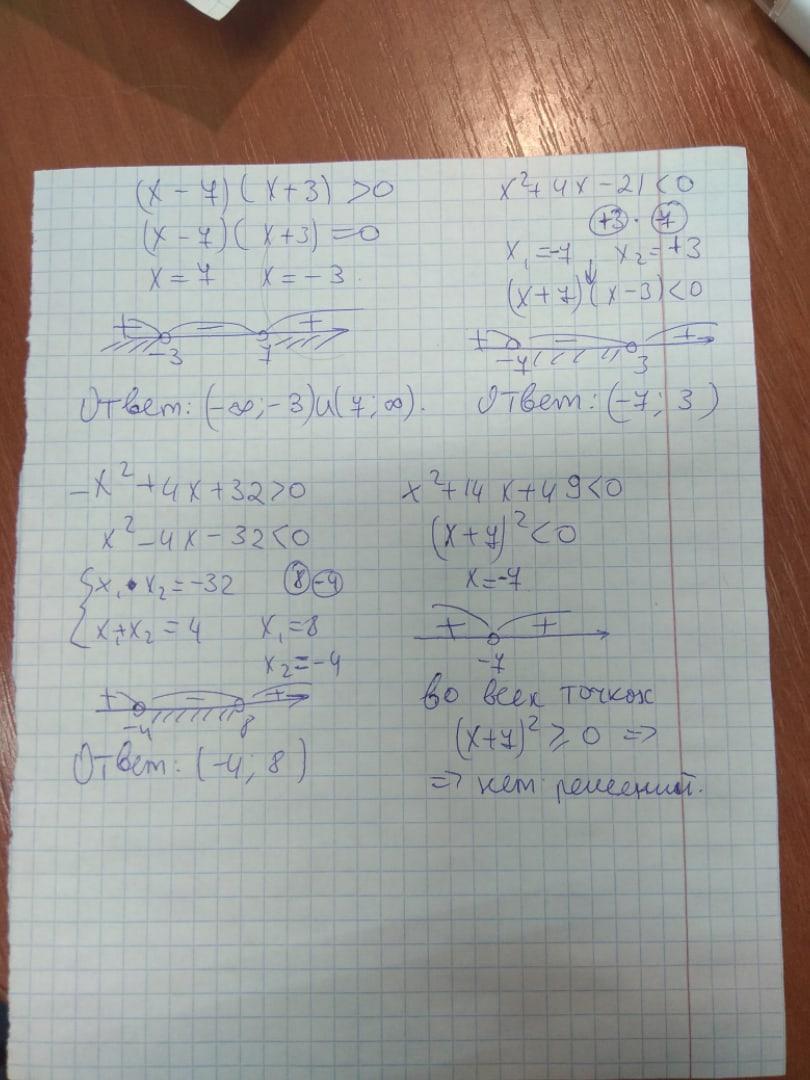 (x - 7)(x+3) >0
(x - 7)(x+3) =0
x = 7 x = -3
+ - +
-3 7
Ответ: (-∞; -3)∪(7; ∞).
x²+4x-21<0
+3 · 7
x₁=-7 x₂=+3
(x+7)(x-3)<0
+ - +
-7 3
Ответ: (-7; 3)
-x²+4x+32>0
x²-4x-32<0
{x₁•x₂=-32 8 -4
x₁+x₂=4 x₁=8
x₂=-4
+ - +
-4 8
Ответ: (-4; 8)
x²+14x+49<0
(x+7)²<0
x=-7
+ +
-7
во всех точках
(x+7)² ≥ 0 =>
=> нет решений.